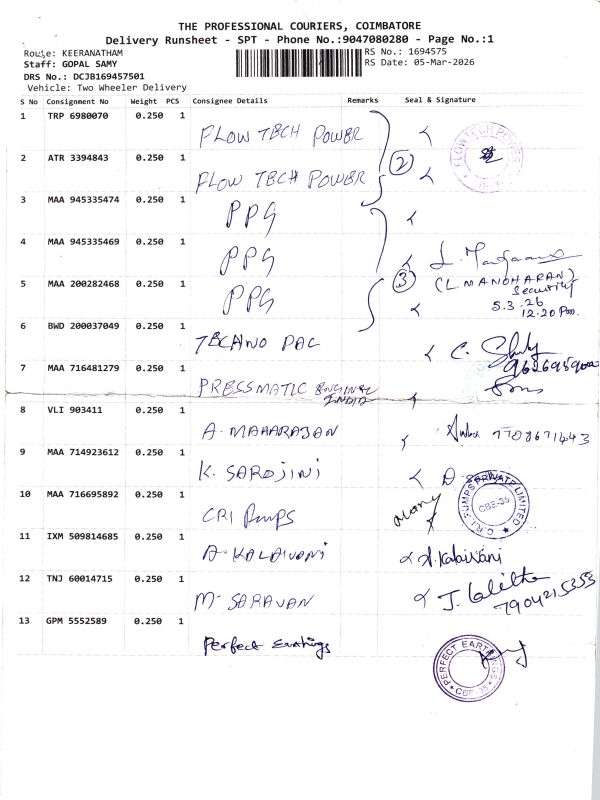 THE PROFESSIONAL COURIERS, COIMBATORE
Delivery Runsheet - SPT - Phone No.:9047080280 - Page No.:1
Route: KEERANATHAM RS No.: 1694575
Staff: GOPAL SAMY RS Date: 05-Mar-2026
DRS No.: DCJB169457501
Vehicle: Two Wheeler Delivery
S No Consignment No Weight PCS Consignee Details Remarks Seal & Signature
1 TRP 6980070 0.250 1
FLOW TECH POWER
FLOW TECH POWER
2 ATR 3394843 0.250 1
FLOW TECH POWER
2
3 MAA 945335474 0.250 1
PPG
4 MAA 945335469 0.250 1
PPG
(L. MANOHARAN)
Security
5 MAA 200282468 0.250 1
PPG
3
5.3.26
12.20
6 BWD 200037049 0.250 1
TECHNO PAC
C.
7 MAA 716481279 0.250 1
PRESSMATIC
INDIA
8 VLI 903411 0.250 1
A. MAHARAJAN
7708671443
9 MAA 714923612 0.250 1
K. SAROJINI
D.
10 MAA 716695892 0.250 1
CRI Pumps
C.R.I. PUMPS PRIVATE LIMITED
CBE-35
11 IXM 509814685 0.250 1
A. KALAIVANI
A. Kalaivani
12 TNJ 60014715 0.250 1
M. SARAVAN
J. Lalitha
7904215353
13 GPM 5552589 0.250 1
Perfect Earthings
PERFECT EARTHINGS
CBE-35